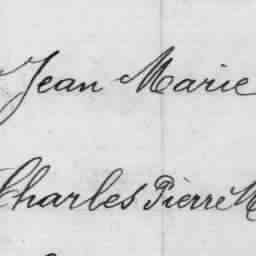 Jean Marie
Charles Pierre M